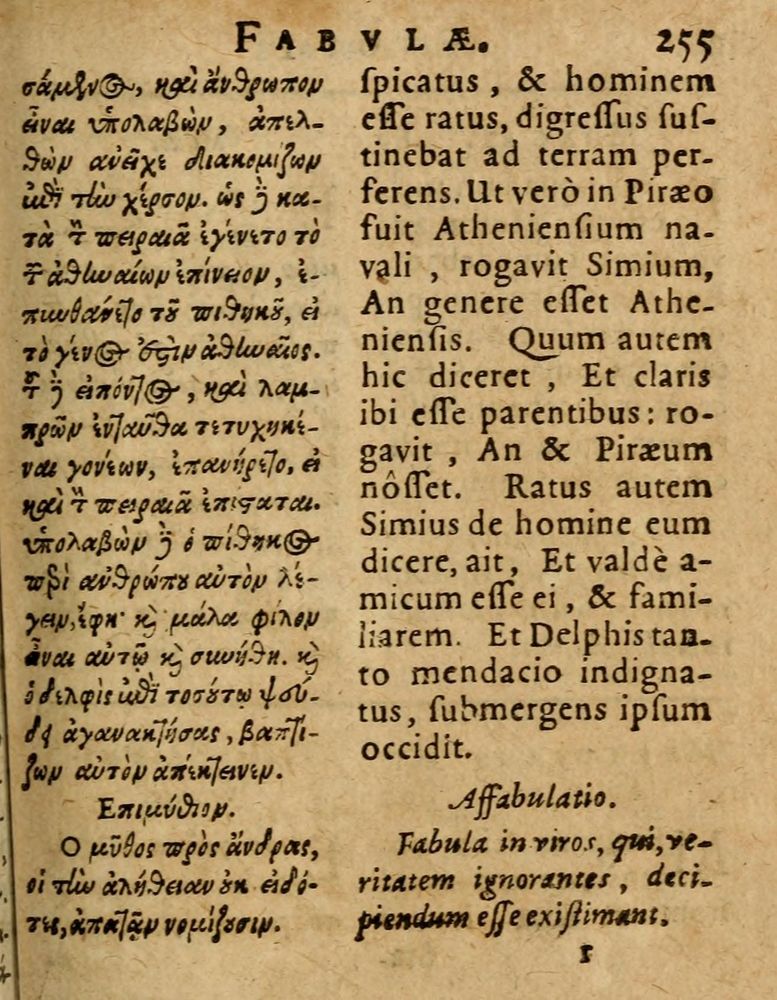 FABVLÆ. 255
σάμενος, καὶ ἄνθρωπον
εἶναι ὑπολαβὼν, ἀπελ-
θὼν ἀνεῖχε διακομίζων
ἐπὶ τὴν χέρσον. ὡς δὲ κα-
τὰ τὸν πειραιᾶ ἐγένετο τὸ
τῶν ἀθηναίων ἐπίνειον, ἐ-
πυνθάνετο τοῦ πιθήκου, εἰ
τὸ γένος ἐστὶν ἀθηναῖος.
τοῦ δὲ εἰπόντος, καὶ λαμ-
πρῶν ἐνταῦθα τετυχηκέ-
ναι γονέων, ἐπανήρετο, εἰ
καὶ τὸν πειραιᾶ ἐπίσταται.
ὑπολαβὼν δὲ ὁ πίθηκος
περὶ ἀνθρώπου αὐτὸν λέ-
γειν, ἔφη· καὶ μάλα φίλον
εἶναι αὐτῷ καὶ συνήθη. καὶ
ὁ δελφὶς ἐπὶ τοσούτῳ ψεύ-
δει ἀγανακτήσας, βαπτί-
ζων αὐτὸν ἀπέκτεινεν.
Επιμύθιον.
Ο μῦθος πρὸς ἄνδρας,
οἳ τὴν ἀλήθειαν οὐκ εἰδό-
τες, ἀπατᾷν νομίζουσιν.
ſpicatus, & hominem
eſſe ratus, digreſſus ſuſ-
tinebat ad terram per-
ferens. Ut verò in Piræo
fuit Athenienſium na-
vali, rogavit Simium,
An genere eſſet Athe-
nienſis. Quum autem
hic diceret, Et claris
ibi eſſe parentibus: ro-
gavit, An & Piræum
nôſſet. Ratus autem
Simius de homine eum
dicere, ait, Et valdè a-
micum eſſe ei, & fami-
liarem. Et Delphis tan-
to mendacio indigna-
tus, ſubmergens ipſum
occidit.
Affabulatio.
Fabula in viros, qui, ve-
ritatem ignorantes, deci-
piendum eſſe exiſtimant.
I